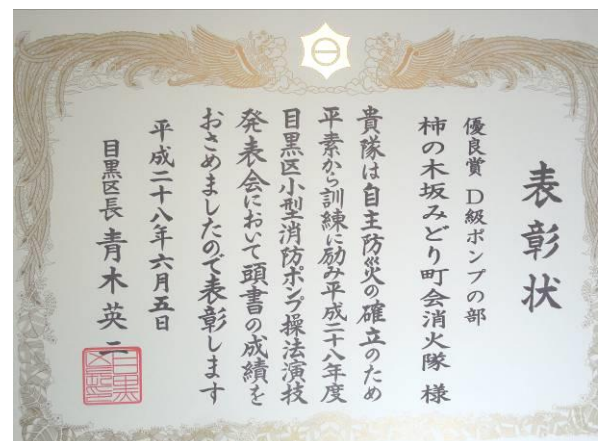 表彰状
優良賞 D級ポンプの部
柿の木坂みどり町会消火隊 様
貴隊は自主防災の確立のため
平素から訓練に励み平成二十八年度
目黒区小型消防ポンプ操法演技
発表会において頭書の成績を
おさめましたので表彰します
平成二十八年六月五日
目黒区長 青木英二